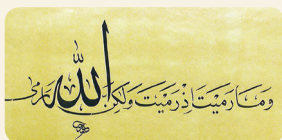 وَمَا رَمَيْتَ إِذْ رَمَيْتَ وَلَكِنَّ اللّٰهَ رَمَى